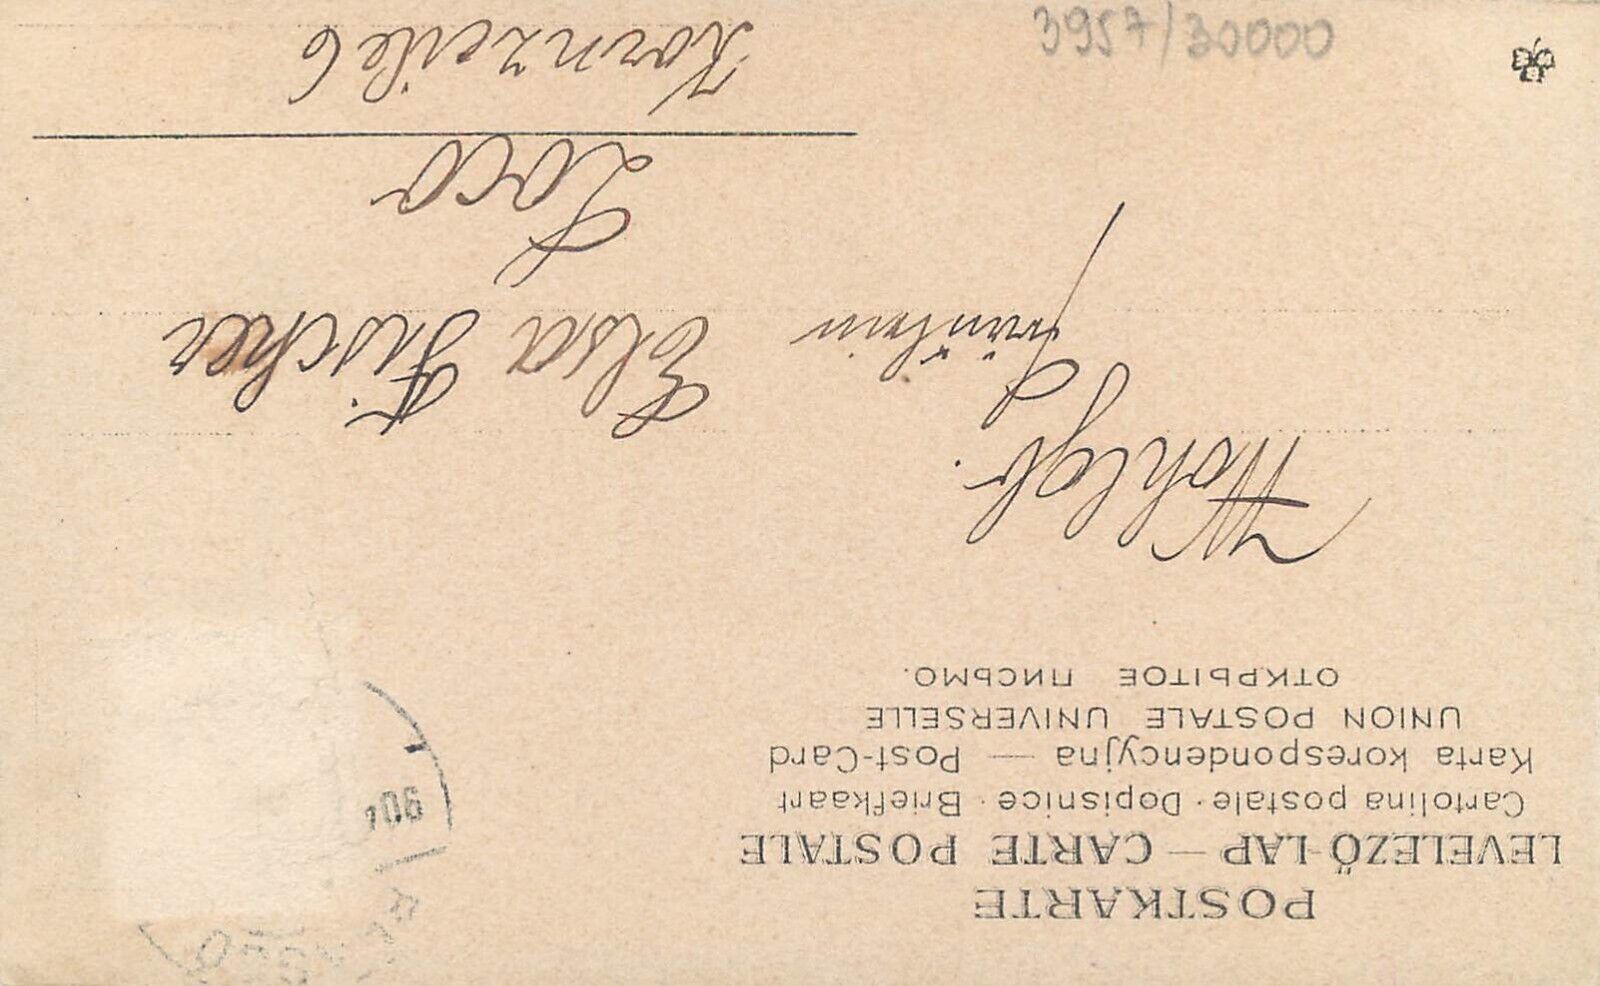 POSTKARTE
LEVELEZŐ-LAP — CARTE POSTALE
Cartolina postale · Dopisnice · Briefkaart
Karta korespondencyjna — Post-Card
UNION POSTALE UNIVERSELLE
ОТКРЫТОЕ ПИСЬМО.
Wohlgeb.
Fräulein
Elsa Fischer
Loco
Kornzeile 6
3957/30000